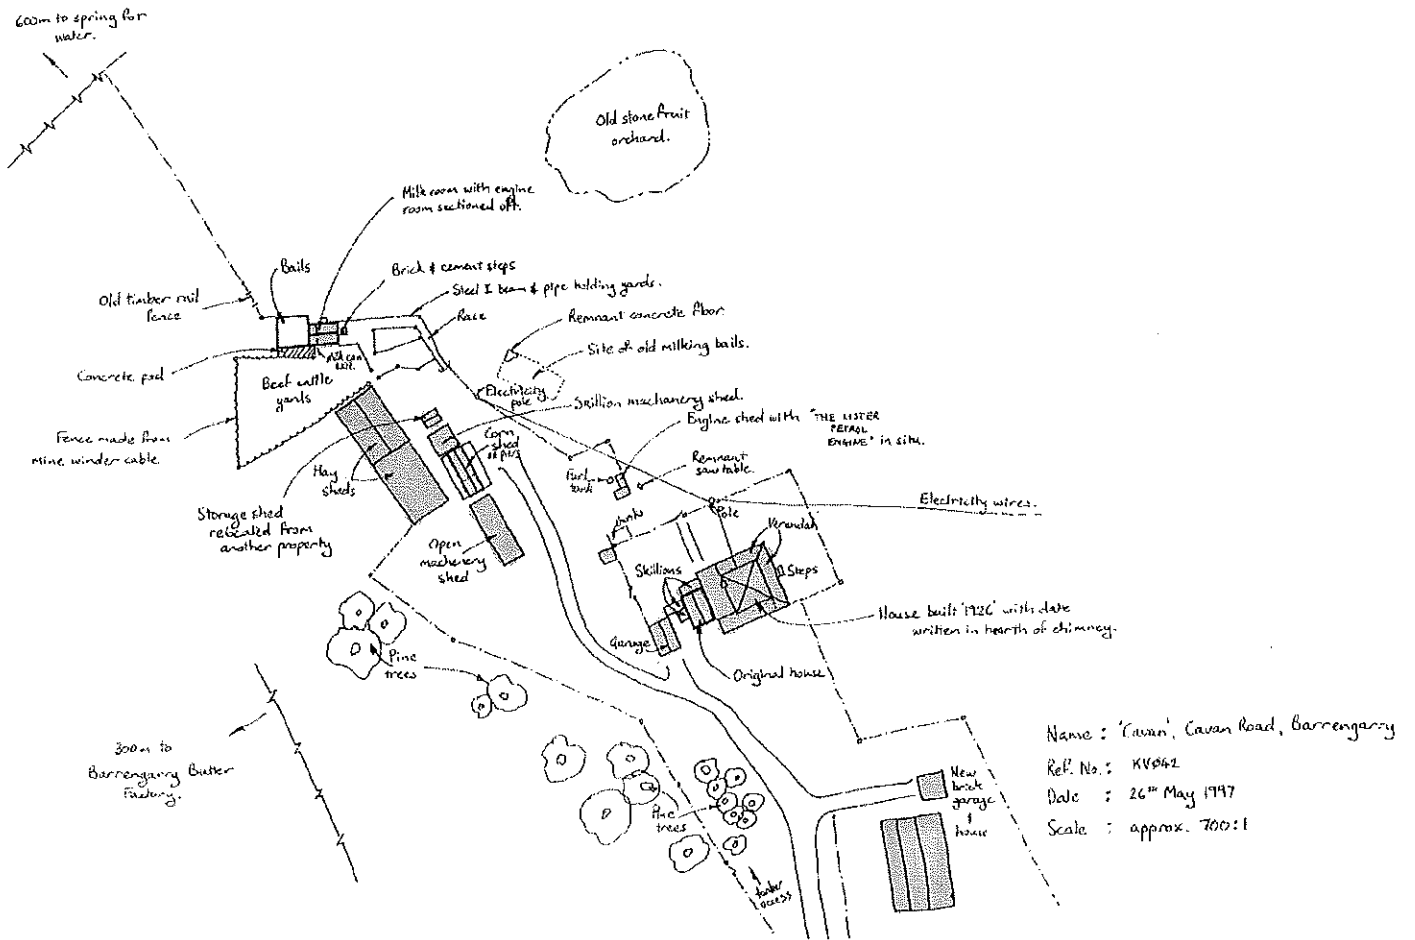 600m to spring for
water.
Old stone fruit
orchard.
Milk room with engine
room sectioned off.
Bails
Brick & cement steps
Steel I beam & pipe holding yards.
Old timber rail
fence
Race
Remnant concrete floor
Site of old milking bails.
Concrete pad
Beef cattle
yards
Electricity
pole
Skillion machanery shed.
Engine shed with "THE LISTER
PETROL
ENGINE" in situ.
Fence made from
Mine winder cable.
Corn
shed
Hay
sheds
Fuel
tank
Remnant
saw table.
Electricity wires.
Pole
Storage shed
relocated from
another property
Verandah
Open
machinery
shed
Skillions
Steps
House built '1926' with date
written in hearth of chimney.
Garage
Original house
Pine
trees
300m to
Barrengarry Butter
Factory.
New
brick
garage
&
house
Pine
trees
access
Name : 'Cavan', Cavan Road, Barrengarry
Ref. No. : KV042
Date : 26th May 1997
Scale : approx. 700:1